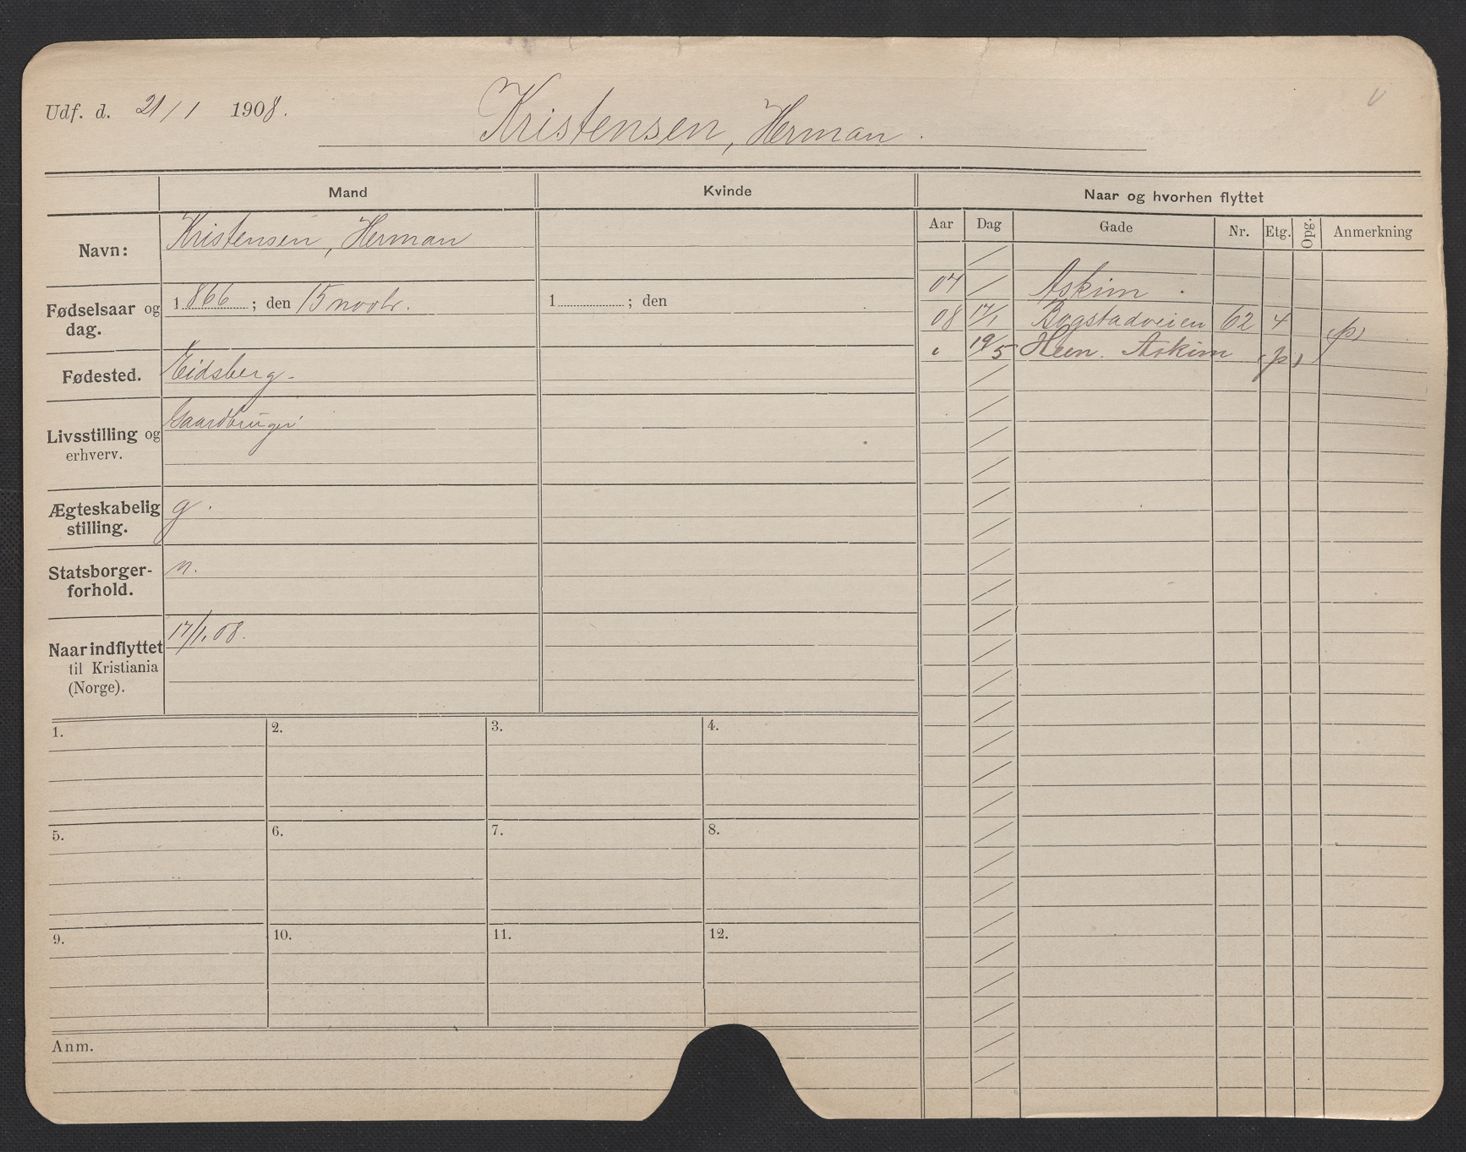 Udf. d. 21/1 1908.
Kristensen, Herman.
Mand
Kvinde
Naar og hvorhen flyttet
Aar
Dag
Gade
Nr.
Etg.
Opg.
Anmerkning
Navn:
Kristensen, Herman
07 / Askim.
Fødselsaar og dag.
1866; den 15 novbr.
1 ; den
08 17/1 Bogstadveien 62 4 (p)
" 19/5 Heen. Askim (p)
Fødested.
Eidsberg.
Livsstilling og erhverv.
Gaardbruger
Ægteskabelig stilling.
g.
Statsborgerforhold.
n.
Naar indflyttet til Kristiania (Norge).
17/1.08.
1.
2.
3.
4.
5.
6.
7.
8.
9.
10.
11.
12.
Anm.